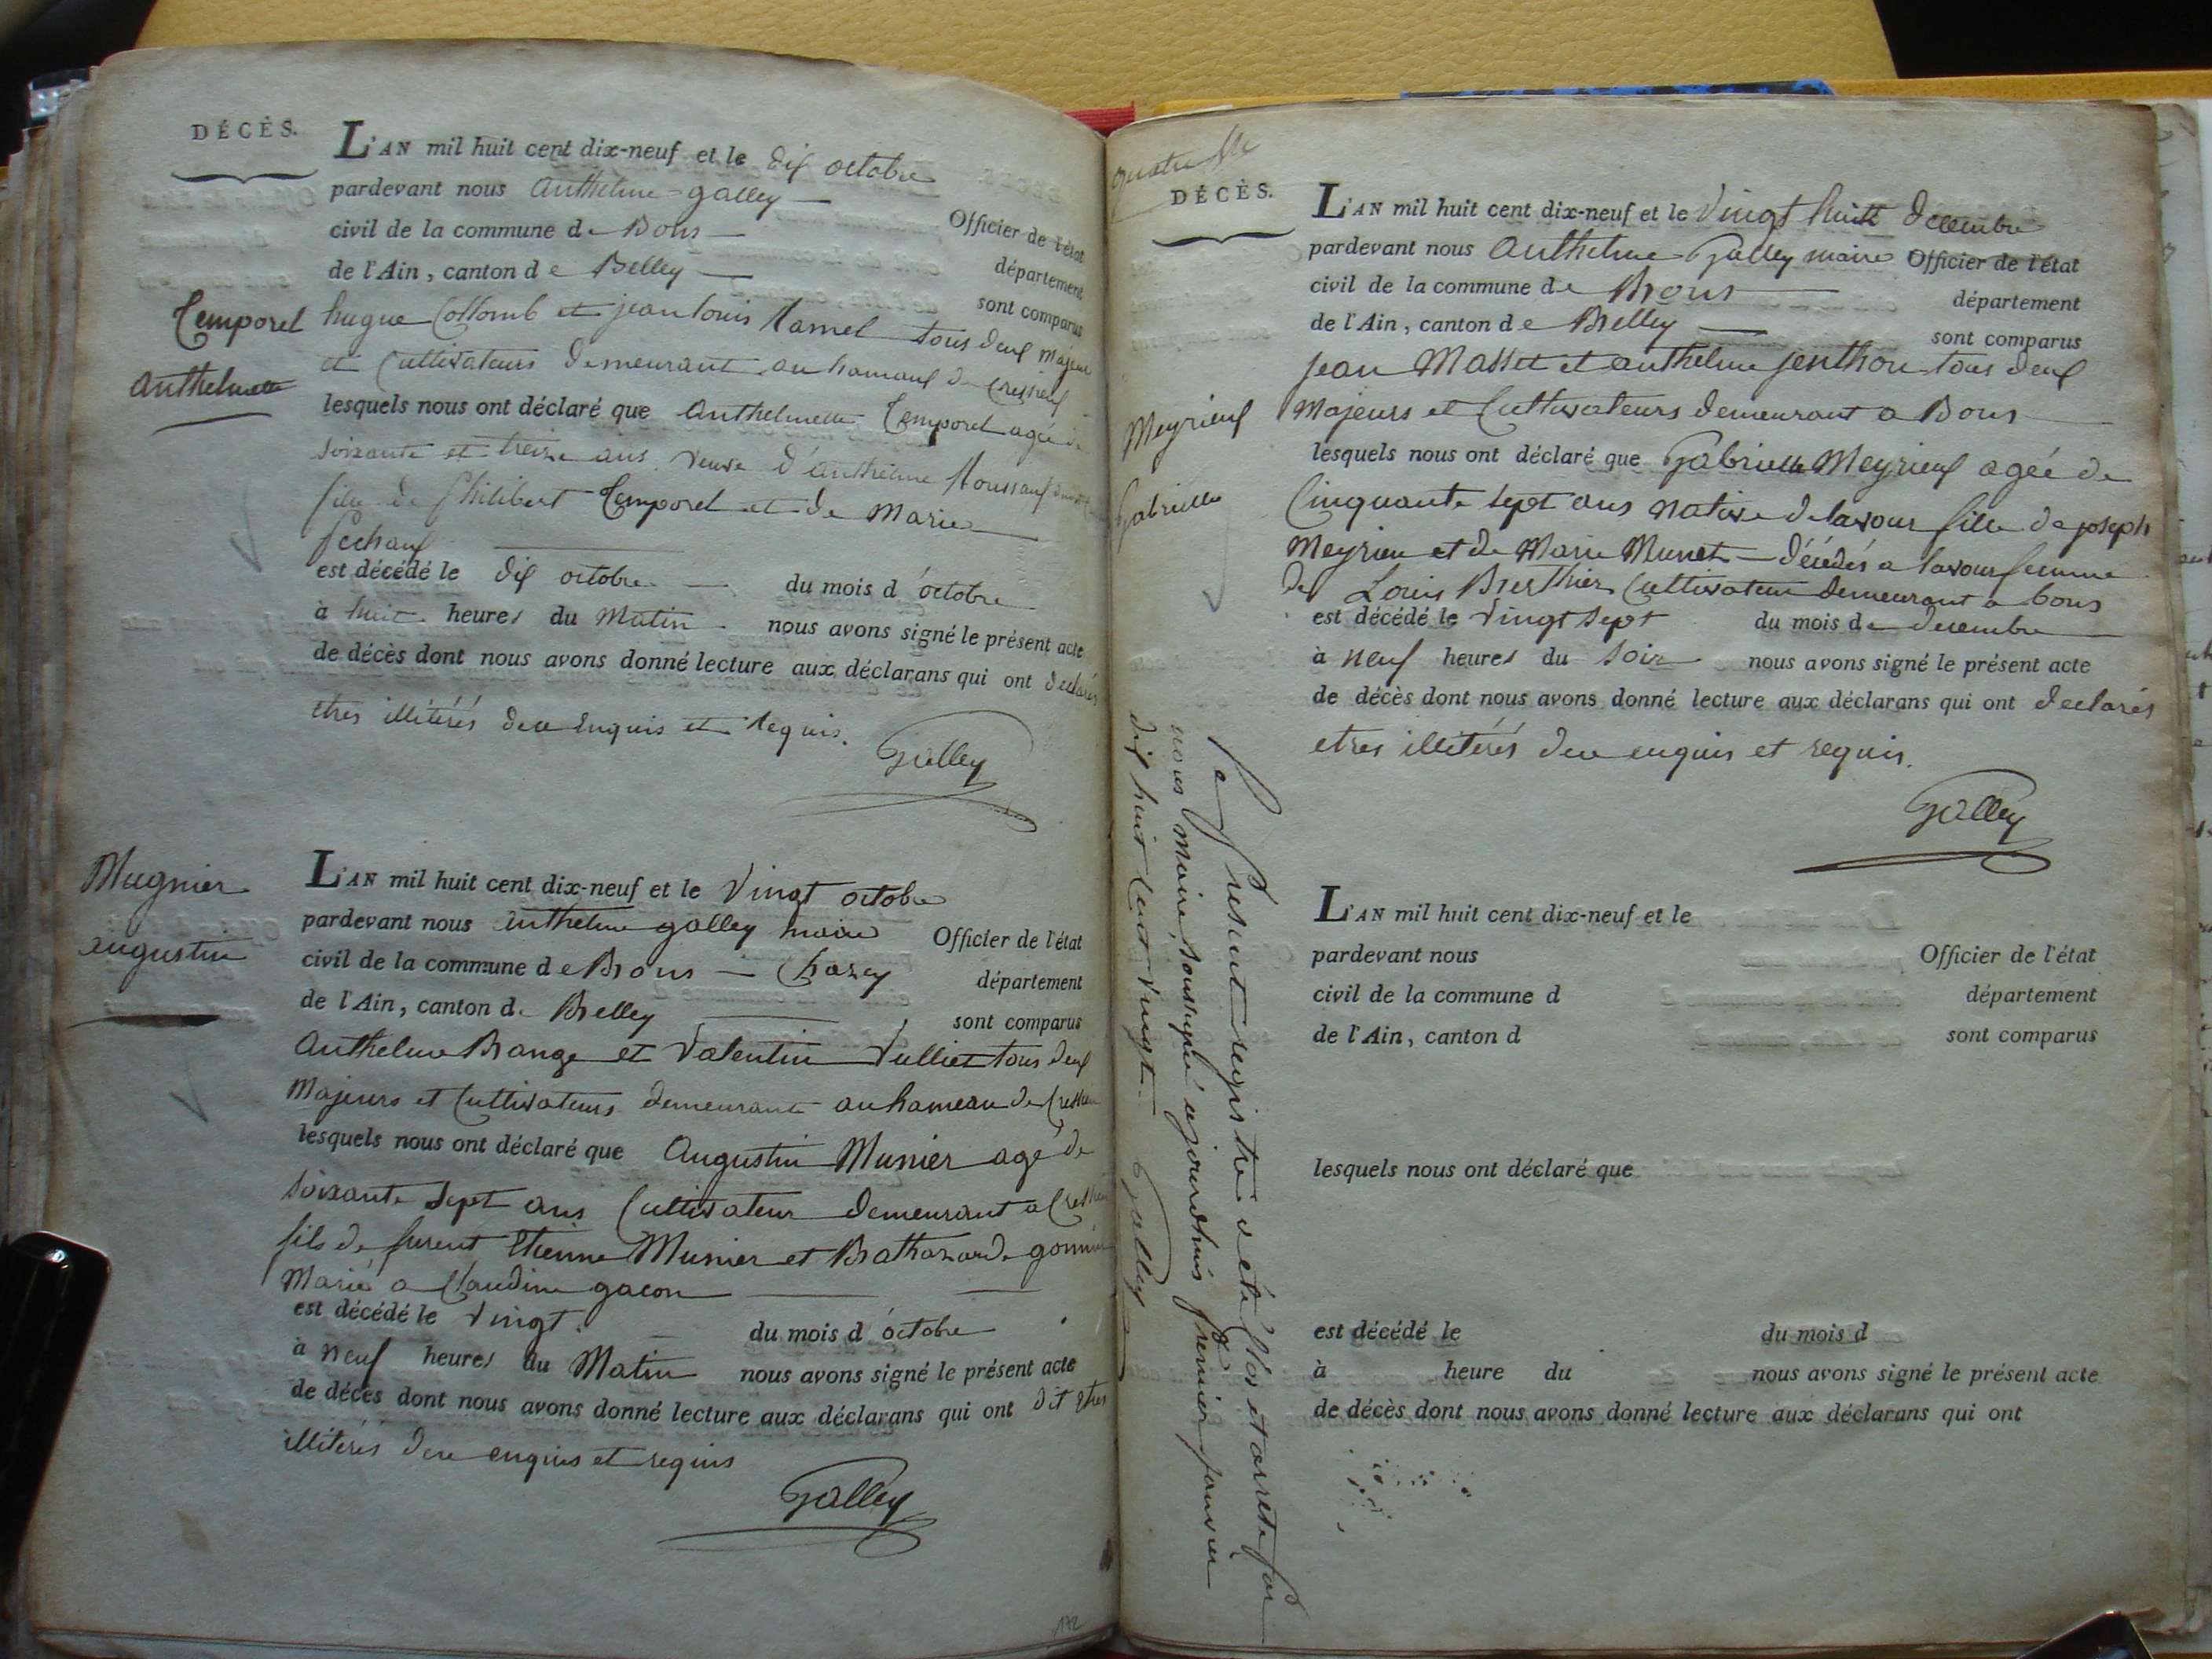 DÉCÈS.
L'AN mil huit cent dix-neuf et le dix octobre
pardevant nous Anthelme galley Officier de l'état
civil de la commune de Bons département
de l'Ain, canton de Belley sont comparus
Temporel
anthelmette
hugue Collomb et jean louis Ramel tous deux majeur
et Cultivateurs demeurant au hamaux de Cressieux
lesquels nous ont déclaré que Anthelmette Temporel agée de
soixante et treize ans veuve d'anthelme
fille de philibert Temporel et de Marie
est décédé le dix octobre du mois d'octobre
à huit heures du Matin nous avons signé le présent acte
de décès dont nous avons donné lecture aux déclarans qui ont declarés
etres illitérés deu enquis et requis.
Galley
Mugnier
augustin
L'AN mil huit cent dix-neuf et le Vingt octobre
pardevant nous anthelme galley maire Officier de l'état
civil de la commune de Bons — Chazey département
de l'Ain, canton d. Belley sont comparus
Anthelme Brange et Valentin Vulliet tous deux
Majeurs et Cultivateurs demeurant au hameau de Cressieu
lesquels nous ont déclaré que Augustin Munier agé de
soixante sept ans Cultivateur demeurant a Cressieu
fils de furent Etienne Munier et Balthazarde
Marié a Claudine gacon
est décédé le Vingt du mois d'octobre
à neuf heures du Matin nous avons signé le présent acte
de décès dont nous avons donné lecture aux déclarans qui ont dit etres
illitérés deu enquis et requis
Galley
172
DÉCÈS.
L'AN mil huit cent dix-neuf et le Vingt huitt decembre
pardevant nous Anthelme Galley maire Officier de l'état
civil de la commune de Bons département
de l'Ain, canton de Belley sont comparus
jean Masset et anthelme jenthon tous deux
Meyrieux
Gabrielle
Majeurs et Cultivateurs demeurant a Bons
lesquels nous ont déclaré que Gabrielle Meyrieux agée de
Cinquante sept ans native de lavour fille de joseph
Meyrieu et de Marie Munet — décédés a lavour femme
de Louis Berthier Cultivateur demeurant a bons
est décédé le Vingt sept du mois de decembre
à neuf heures du soir nous avons signé le présent acte
de décès dont nous avons donné lecture aux déclarans qui ont declarés
etres illitérés deu enquis et requis.
Galley
Le present registre a été clos et arreté par
nous maire soussigné aujourdhuis premier janvier
dix huit Cent vingt. Galley
L'AN mil huit cent dix-neuf et le
pardevant nous Officier de l'état
civil de la commune d département
de l'Ain, canton d sont comparus
lesquels nous ont déclaré que
est décédé le du mois d
à heure du nous avons signé le présent acte
de décès dont nous avons donné lecture aux déclarans qui ont